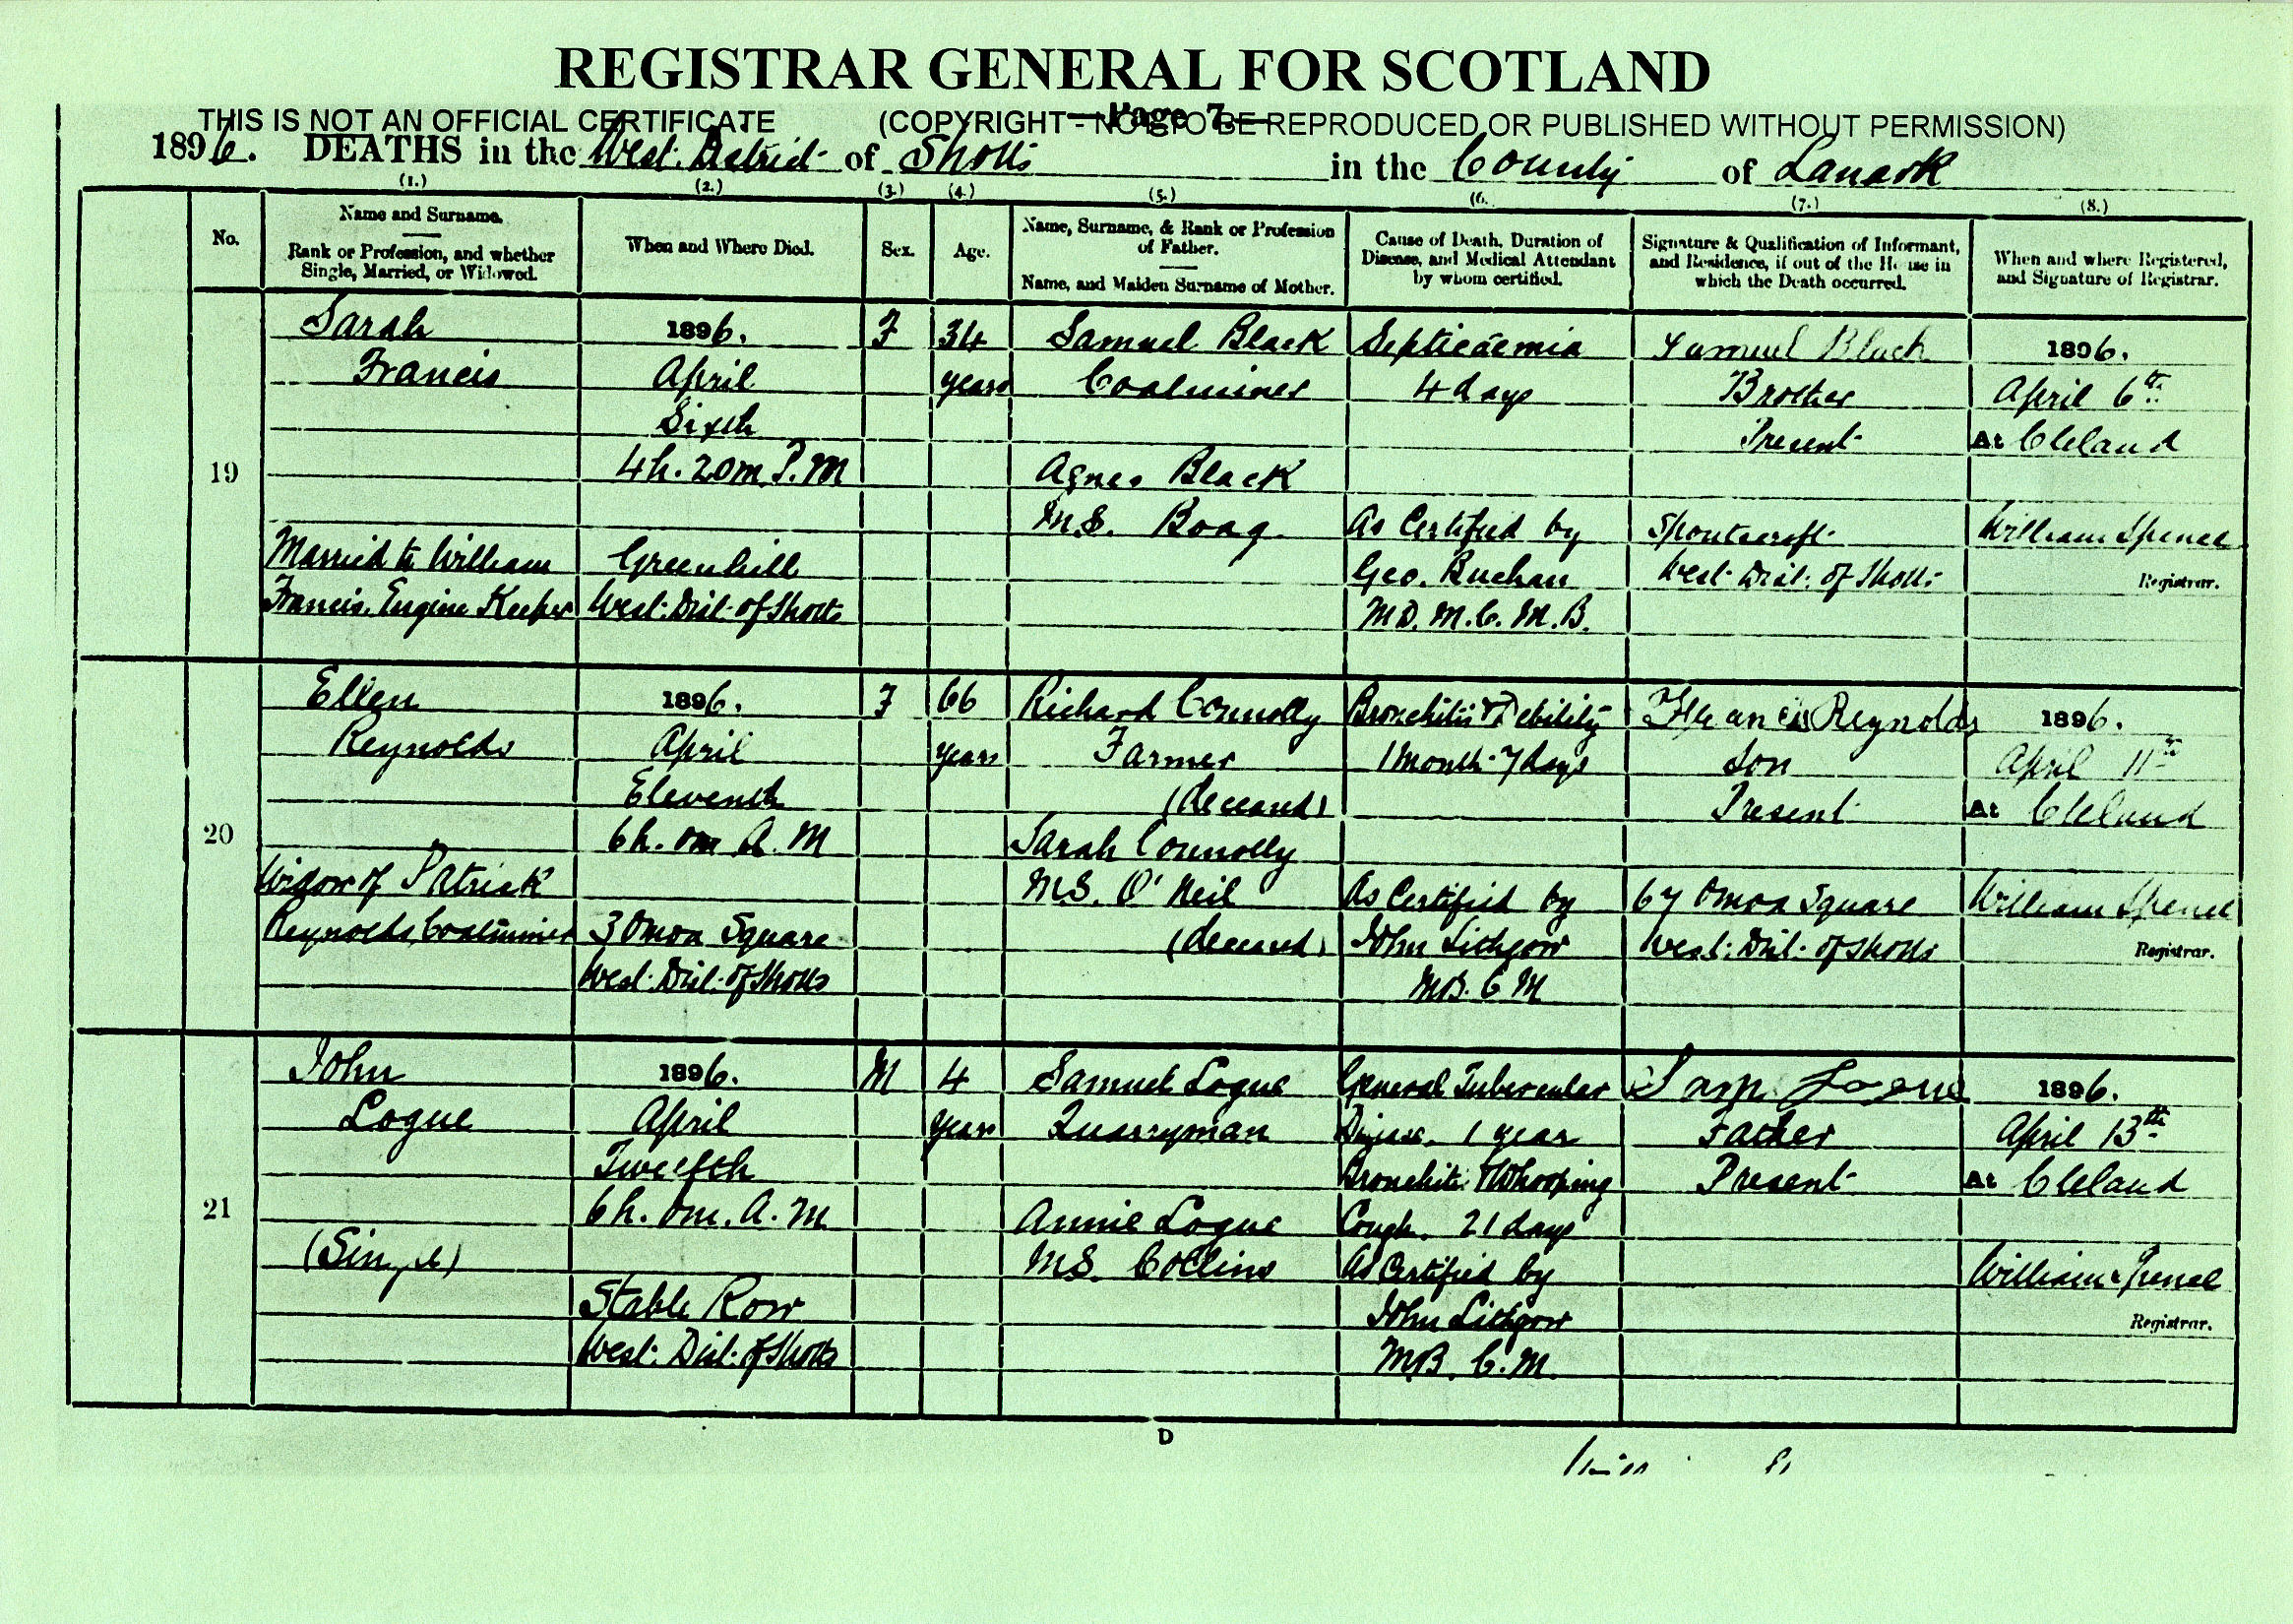 REGISTRAR GENERAL FOR SCOTLAND
THIS IS NOT AN OFFICIAL CERTIFICATE (COPYRIGHT - NOT TO BE REPRODUCED OR PUBLISHED WITHOUT PERMISSION)
Page 7.
1896. DEATHS in the West District of Shotts in the County of Lanark
(1.) (2.) (3.) (4.) (5.) (6. (7.) (8.)
No.
Name and Surname.
Rank or Profession, and whether
Single, Married, or Widowed.
When and Where Died.
Sex.
Age.
Name, Surname, & Rank or Profession
of Father.
Name, and Maiden Surname of Mother.
Cause of Death, Duration of
Disease, and Medical Attendant
by whom certified.
Signature & Qualification of Informant,
and Residence, if out of the House in
which the Death occurred.
When and where Registered,
and Signature of Registrar.
19
Sarah
Francis
Married to William
Francis, Engine Keeper
1896.
April
Sixth
4h. 20m. P.M
Greenhill
West. Dist. of Shotts
F
34
years
Samuel Black
Coalminer
Agnes Black
M.S. Boag.
Septicaemia
4 days
As Certified by
Geo. Buchan
M.D. M.C. M.B.
Samuel Black
Brother
Present
Spoutcroft
West. Dist. of Shotts
1896.
April 6th
At Cleland
William Spence
Registrar.
20
Ellen
Reynolds
Widow of Patrick
Reynolds, Coalminer
1896.
April
Eleventh
6h. 0m A. M
3 Omoa Square
West. Dist. of Shotts
F
66
years
Richard Connolly
Farmer
(deceased)
Sarah Connolly
M.S. O'Neil
(deceased)
Bronchitis & Debility
1 Month 7 days
As Certified by
John Lithgow
M.B. C M
Francis Reynolds
Son
Present
67 Omoa Square
West. Dist. of Shotts
1896.
April 11th
At Cleland
William Spence
Registrar.
21
John
Logue
(Single)
1896.
April
Twelfth
6h. 0m. A. M
Stable Row
West. Dist. of Shotts
M
4
years
Samuel Logue
Quarryman
Annie Logue
M.S. Collins
General Tubercular
Disease. 1 year
Bronchitis & Whooping
Cough. 21 days
As Certified by
John Lithgow
M.B. C.M.
Sam Logue
Father
Present
1896.
April 13th
At Cleland
William Spence
Registrar.
D